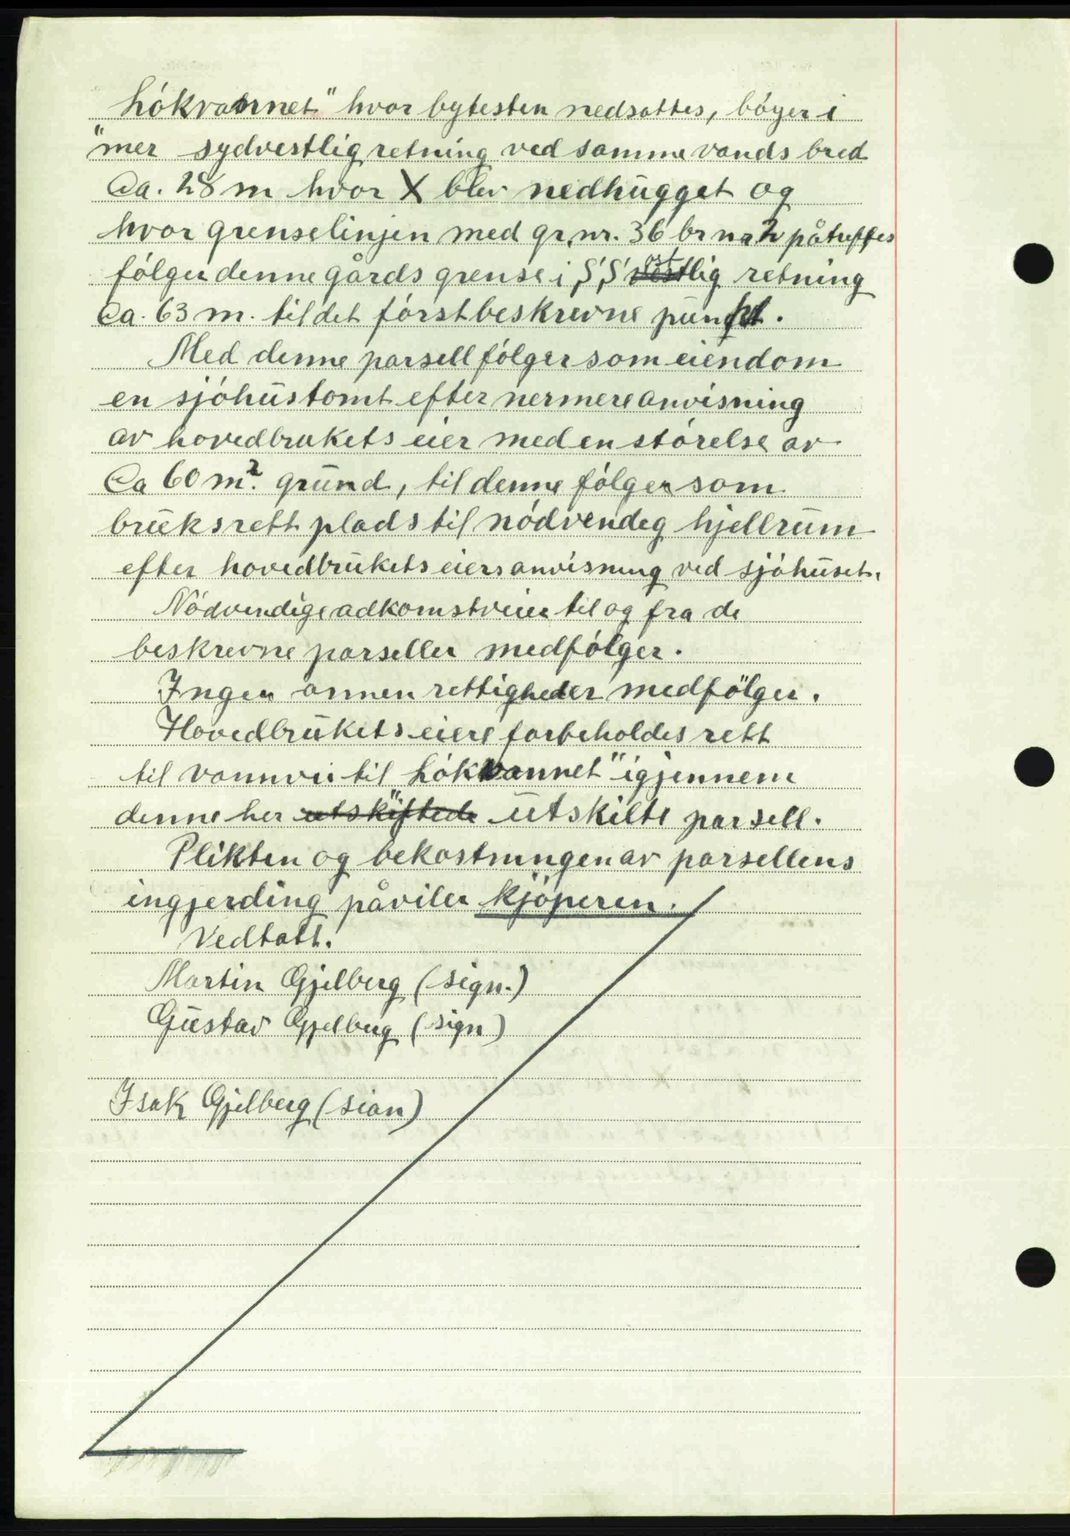 Lókvannet" hvor bytesten nedsattes, bóyer i
"mer sydvestlig retning ved samme vands bred
Ca. 28 m hvor X blev nedhugget og
hvor grenselinjen med gr. nr. 36 br nr 2 påtreffes
fólger denne gårds grense i S' S' óstlig retning
Ca. 63 m. til det fórst beskrevne punkt.
Med denne parsell fólger som eiendom
en sjóhustomt efter nermere anvisning
av hovedbrukets eier med en stórelse av
Ca 60 m². grund, til denne fólger som
bruksrett plads til nódvendig hjellrum
efter hovedbrukets eiers anvisning ved sjóhuset.
Nódvendige adkomstveier til og fra de
beskrevne parseller medfólger.
Ingen annen rettigheder medfólger.
Hovedbrukets eiere forbeholdes rett
til vannvei til Lókvannet" igjennem
denne her utskiftede utskilte parsell.
Plikten og bekostningen av parsellens
ingjerding påviler kjóperen.
Vedtatt.
Martin Gjelberg (sign.)
Gustav Gjelberg (sign)
Isak Gjelberg (sign)